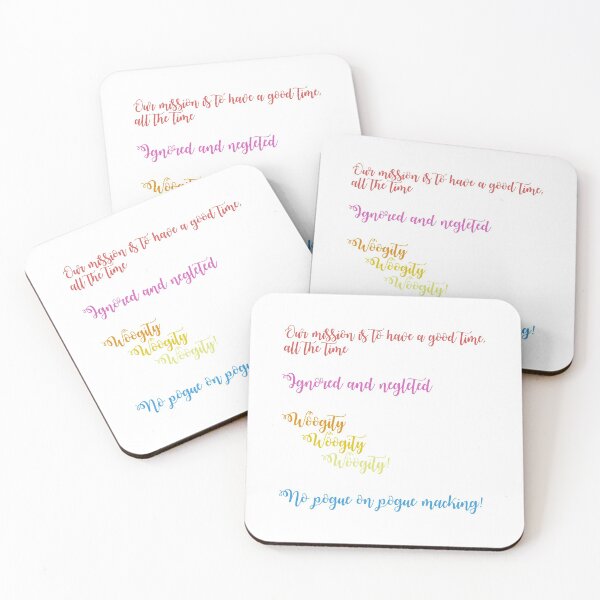 Our mission is to have a good time,
all the time
Ignored and negleted
Woogity
Our mission is to have a good time,
all the time
Ignored and negleted
Woogity
Woogity
Woogity!
Our mission is to have a good time,
all the time
Ignored and negleted
Woogity
Woogity
Woogity!
No pogue on pogue
Our mission is to have a good time,
all the time
Ignored and negleted
Woogity
Woogity
Woogity!
No pogue on pogue macking!